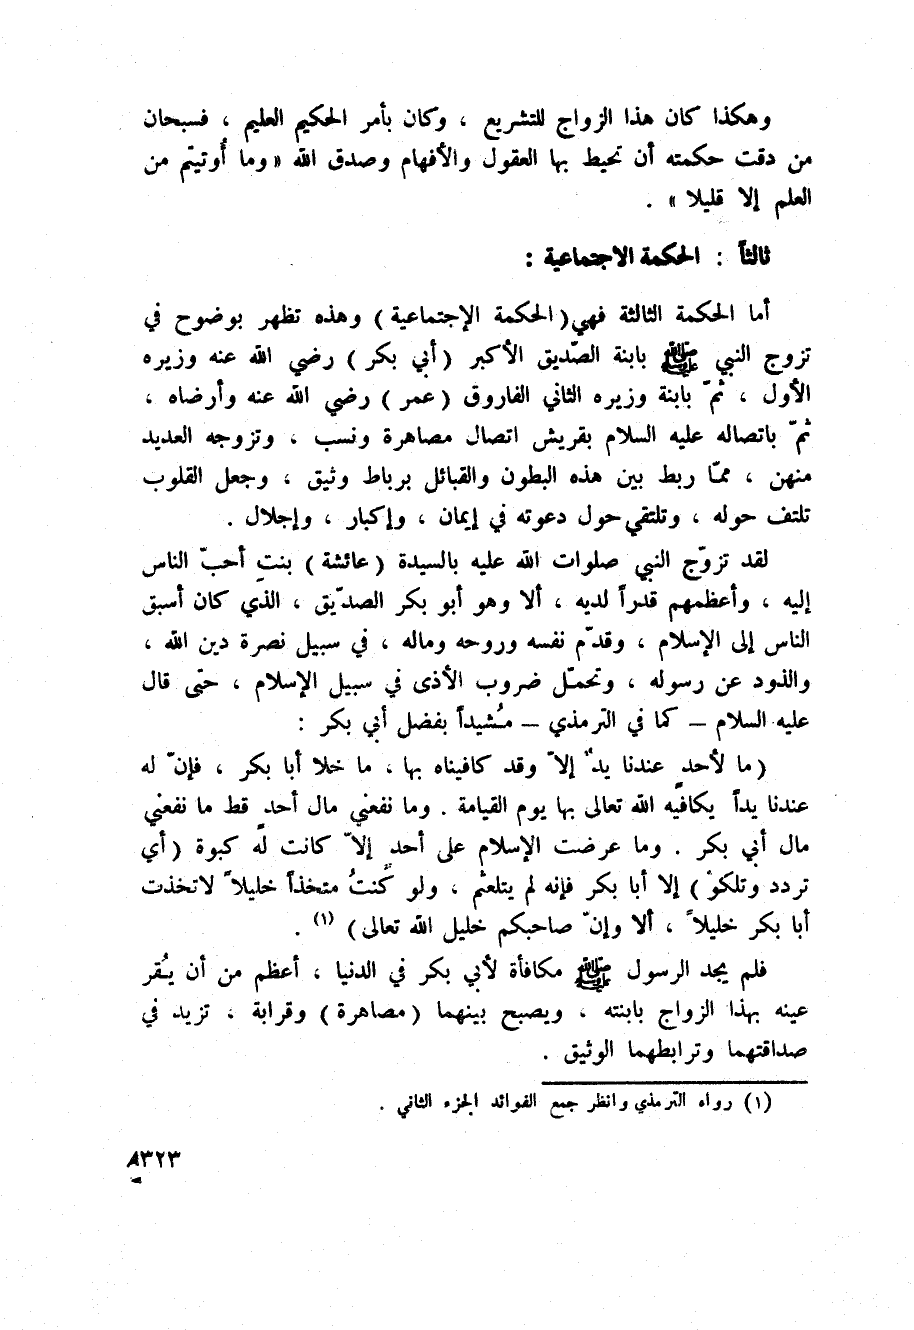 وهكذا كان هذا الزواج للتشريع ، وكان بأمر الحكيم العليم ، فسبحان
من دقت حكمته أن تحيط بها العقول والأفهام وصدق الله « وما أُوتيتم من
العلم إلا قليلا » .
ثالثاً : الحكمة الاجتماعية :
أما الحكمة الثالثة فهي (الحكمة الإجتماعية) وهذه تظهر بوضوح في
تزوج النبي ﷺ بابنة الصّديق الأكبر (أبي بكر) رضي الله عنه وزيره
الأول ، ثمّ بابنة وزيره الثاني الفاروق (عمر) رضي الله عنه وأرضاه ،
ثمّ باتصاله عليه السلام بقريش اتصال مصاهرة ونسب ، وتزوجه العديد
منهن ، ممّا ربط بين هذه البطون والقبائل برباط وثيق ، وجعل القلوب
تلتف حوله ، وتلتقي حول دعوته في إيمان ، وإكبار ، وإجلال .
لقد تزوّج النبي صلوات الله عليه بالسيدة (عائشة) بنتِ أحبّ الناس
إليه ، وأعظمهم قدراً لديه ، ألا وهو أبو بكر الصدّيق ، الذي كان أسبق
الناس إلى الإسلام ، وقدّم نفسه وروحه وماله ، في سبيل نصرة دين الله ،
والذود عن رسوله ، وتحمّل ضروب الأذى في سبيل الإسلام ، حتّى قال
عليه السلام – كما في الترمذي – مُشيداً بفضل أبي بكر :
(ما لأحدٍ عندنا يدٌ إلاّ وقد كافيناه بها ، ما خلا أبا بكر ، فإنّ له
عندنا يداً يكافيه الله تعالى بها يوم القيامة . وما نفعني مال أحدٍ قط ما نفعني
مال أبي بكر . وما عرضت الإسلام على أحدٍ إلاّ كانت له كبوة (أي
تردد وتلكؤ) إلا أبا بكر فإنه لم يتلعثم ، ولو كُنتُ متخذاً خليلاً لاتخذت
أبا بكر خليلاً ، ألا وإنّ صاحبكم خليل الله تعالى) (١) .
فلم يجد الرسول ﷺ مكافأة لأبي بكر في الدنيا ، أعظم من أن يُقر
عينه بهذا الزواج بابنته ، ويصبح بينهما (مصاهرة) وقرابة ، تزيد في
صداقتهما وترابطهما الوثيق .
(١) رواه الترمذي وانظر جمع الفوائد الجزء الثاني .
٣٢٣